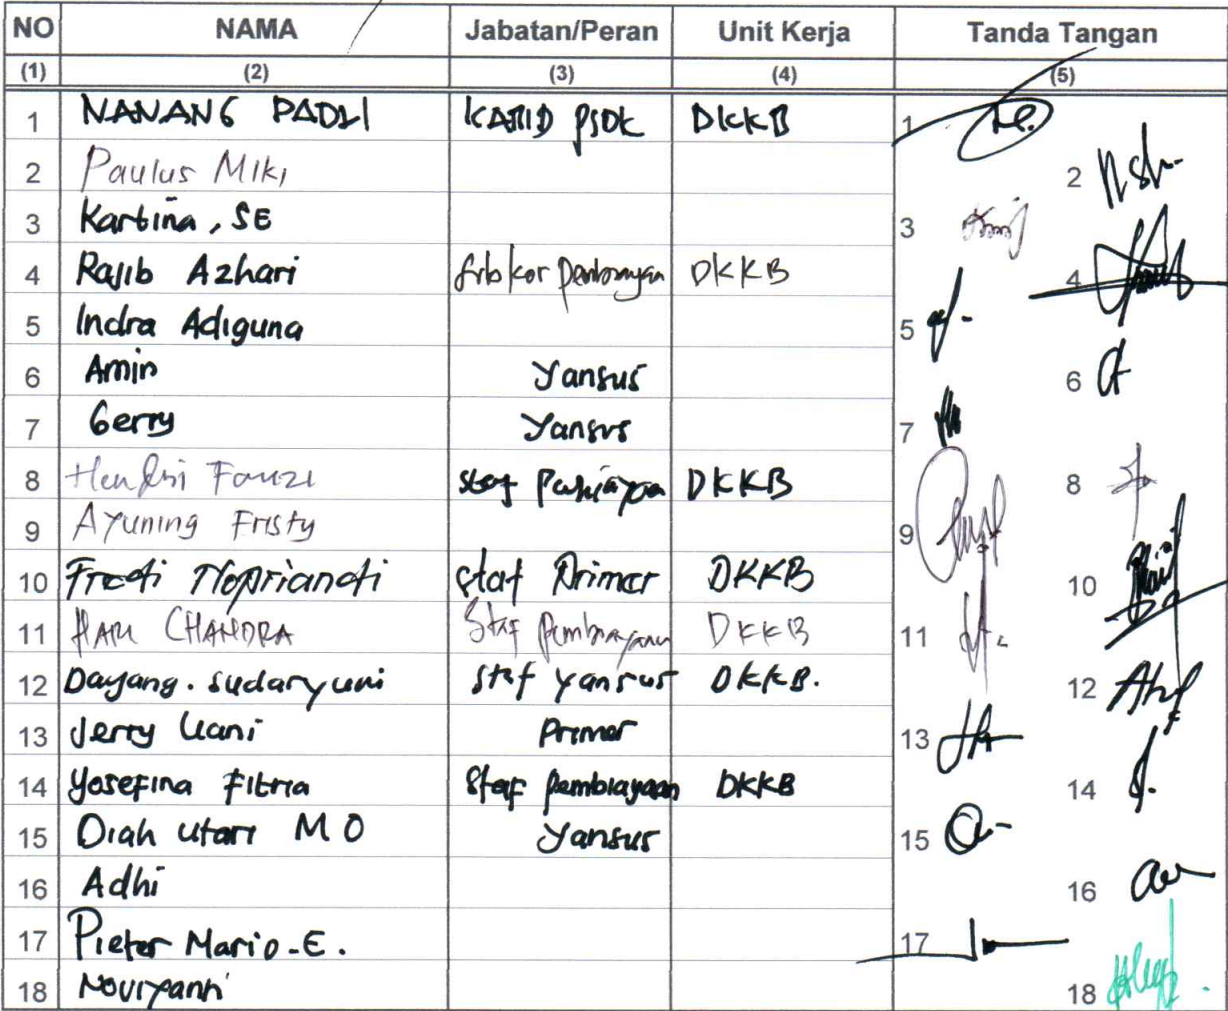 NO NAMA Jabatan/Peran Unit Kerja Tanda Tangan
(1) (2) (3) (4) (5)
1 NANANG PADLI KABID PSDK DKKB 1
2 Paulus Miki 2
3 Kartina, SE 3
4 Rajib Azhari DKKB 4
5 Indra Adiguna 5
6 Amin Yansus 6
7 Gerry Yansus 7
8 Hendri Fauzi staf DKKB 8
9 Ayuning Fristy 9
10 Fredi Noprianoti staf Primer DKKB 10
11 HARI CHANDRA Staf Pembiayaan DKKB 11
12 Dayang. sudaryuni staf yansus DKKB. 12
13 Jerry Uani Primer 13
14 Yosefina Fitria Staf pembiayaan DKKB 14
15 Diah utari M O Yansus 15
16 Adhi 16
17 Pieter Mario-E. 17
18 Noviyanti 18